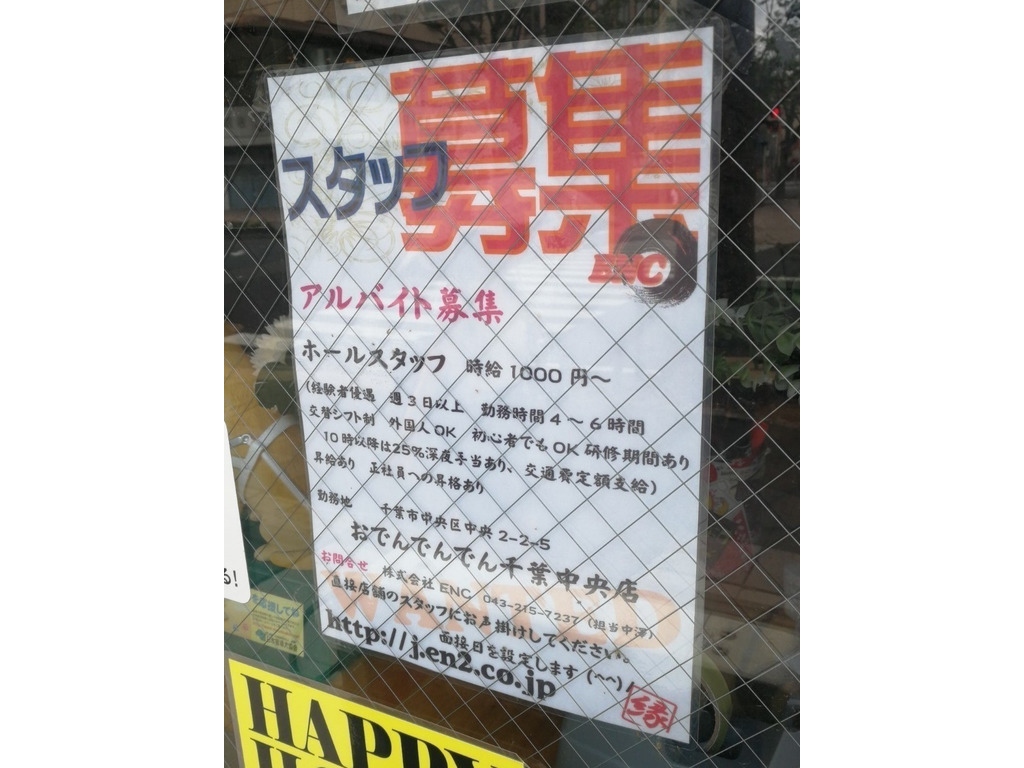 スタッフ募集
ENC
アルバイト募集
ホールスタッフ 時給1000円～
(経験者優遇 週3日以上 勤務時間4～6時間
交替シフト制 外国人OK 初心者でもOK 研修期間あり
10時以降は25%深夜手当あり、交通費定額支給)
昇給あり 正社員への昇格あり
勤務地 千葉市中央区中央2-2-5
おでんでんでん千葉中央店
お問合せ 株式会社ENC 043-215-7237(担当中澤)
WANTED
直接店舗のスタッフにお声掛けしてください。
面接日を設定します(^^)/
http://j.en2.co.jp
縁
る!
HAPPY